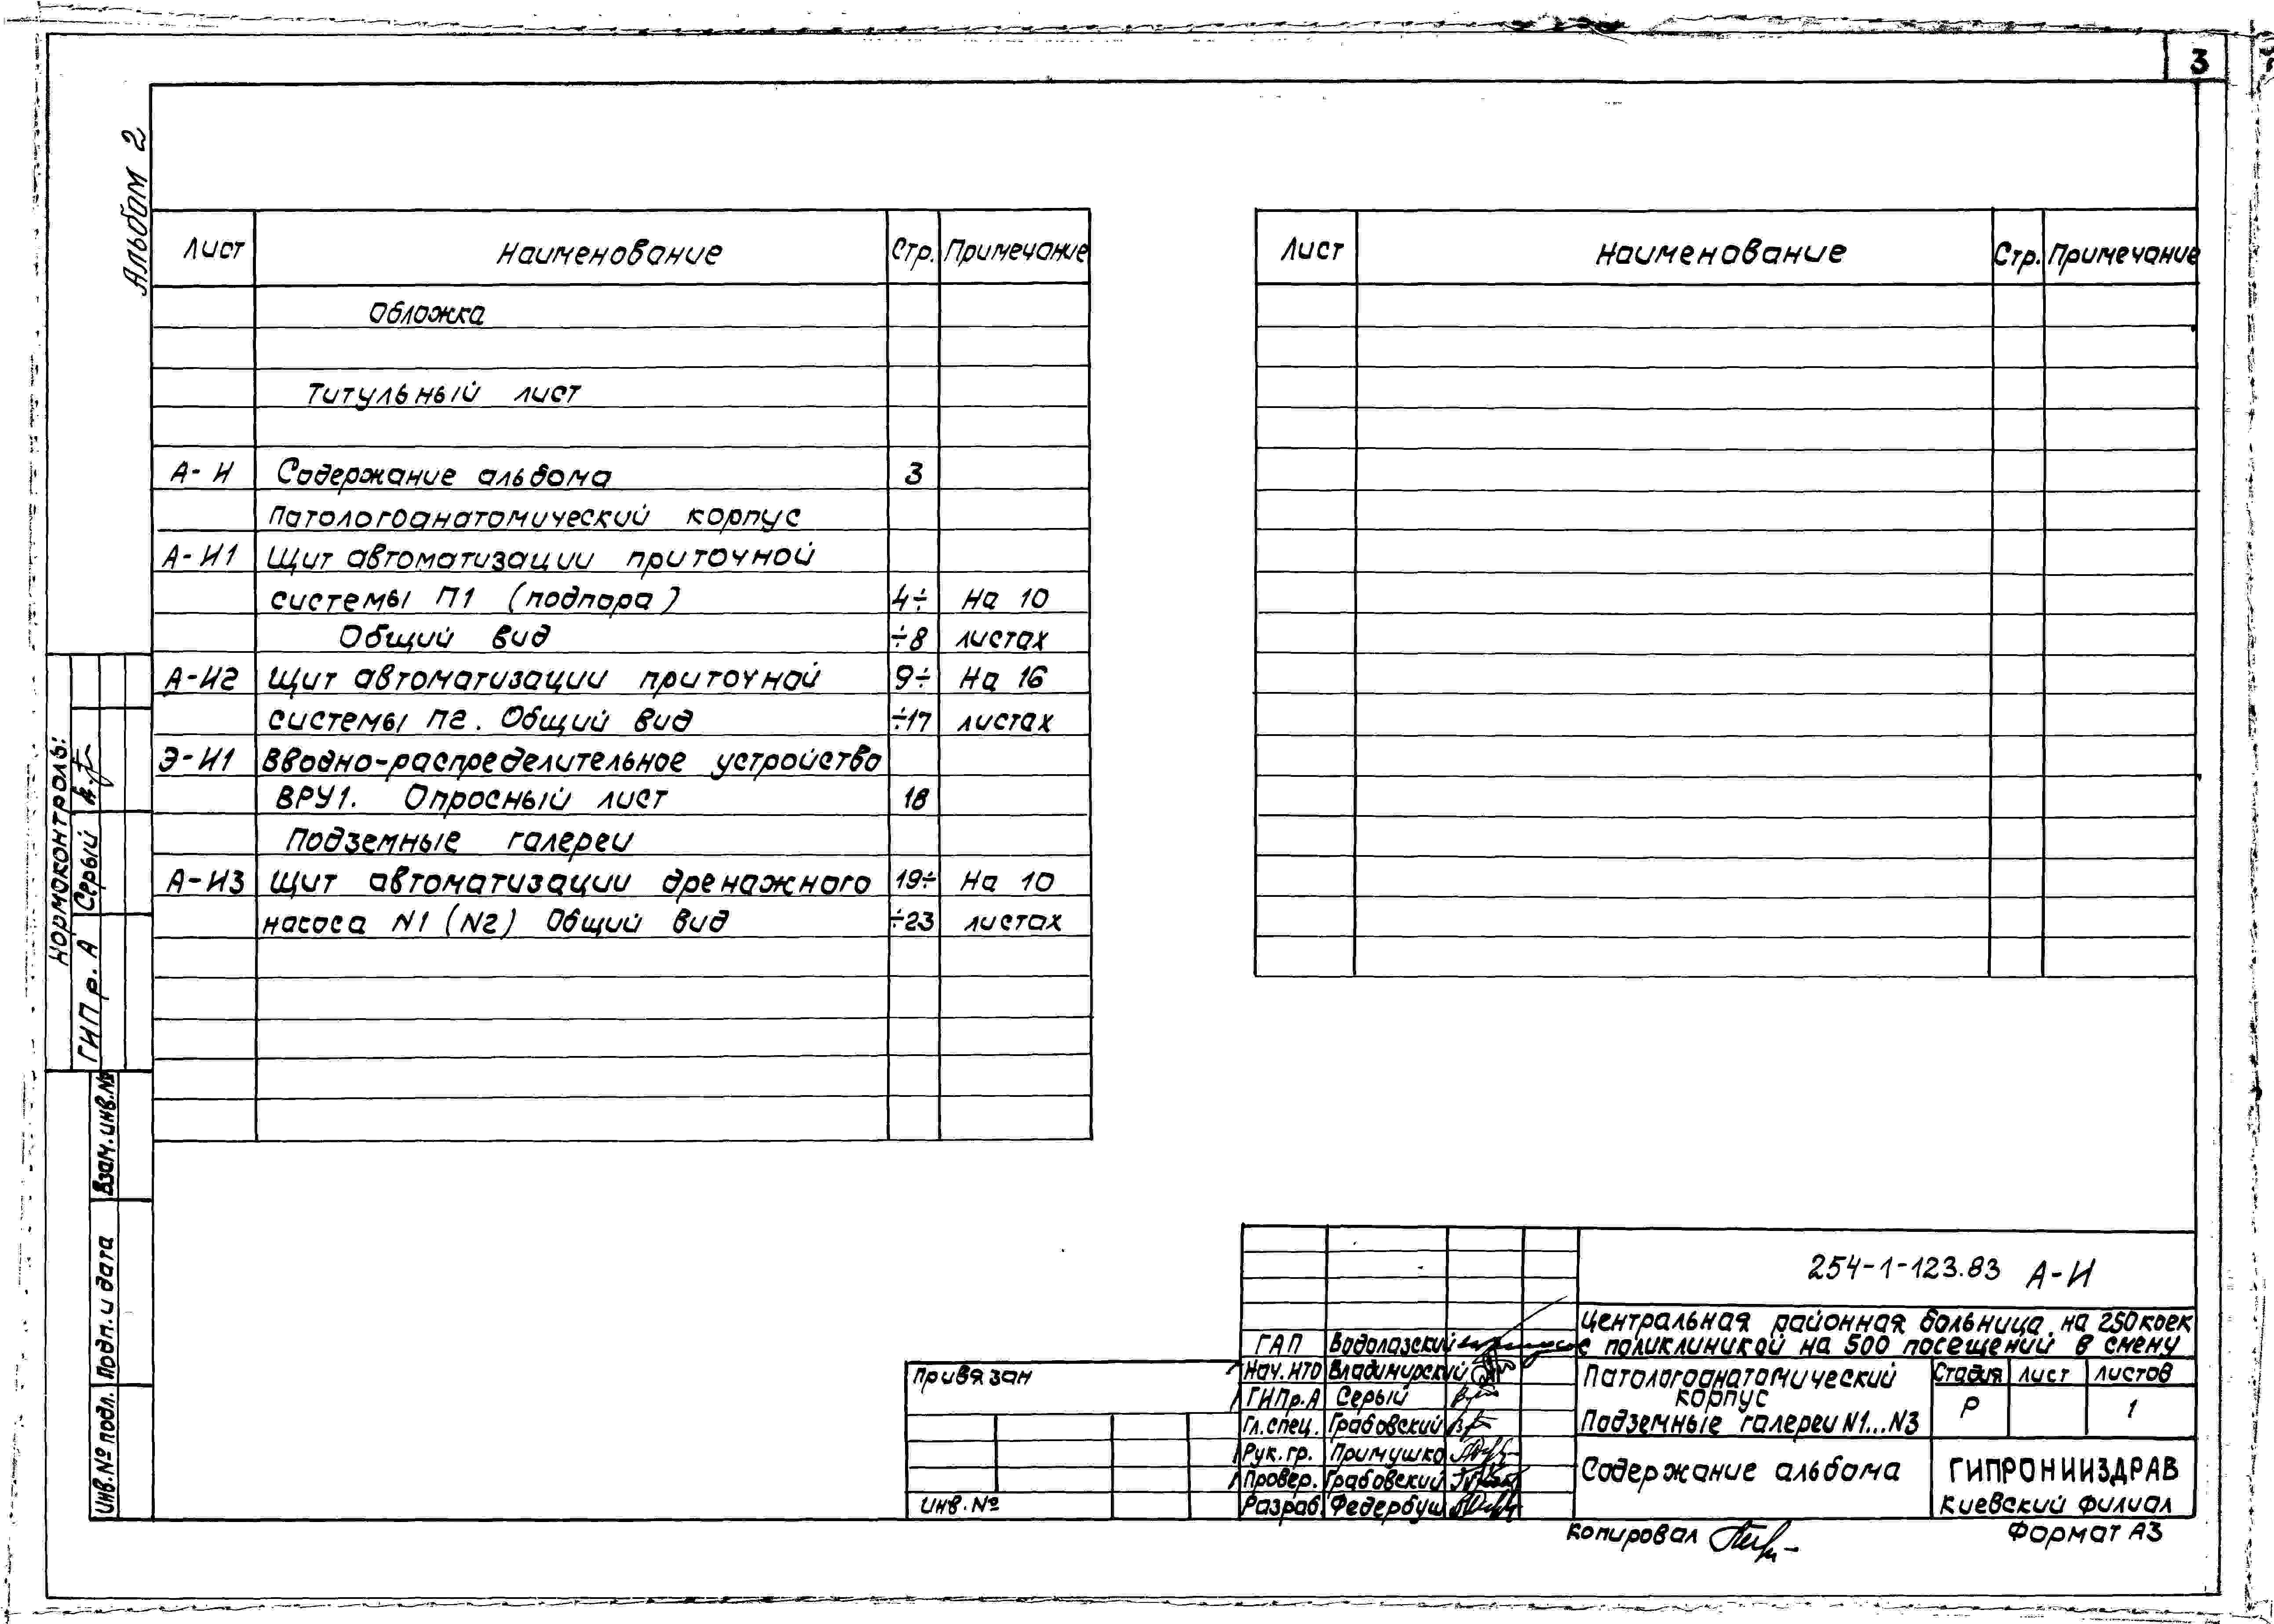 3
Альбом 2
Лист Наименование Стр. Примечание
Обложка
Титульный лист
А-И Содержание альбома 3
Патологоанатомический корпус
А-И1 Щит автоматизации приточной
системы П1 (подпора) 4÷ На 10
Общий вид ÷8 листах
А-И2 Щит автоматизации приточной 9÷ На 16
системы П2. Общий вид ÷17 листах
Э-И1 Вводно-распределительное устройство
ВРУ1. Опросный лист 18
Подземные галереи
А-И3 Щит автоматизации дренажного 19÷ На 10
насоса N1 (N2) Общий вид ÷23 листах
Лист Наименование Стр. Примечание
Нормоконтроль:
ГИП р. А Серый
Взам. инв.№
Подп. и дата
Инв.№ подл.
Привязан
Инв. №
ГАП Водолазский
Нач. ИТО Владимирский
ГИПр.А Серый
Гл. спец. Грабовский
Рук. гр. Примушко
Провер. Грабовский
Разраб. Федербуш
254-1-123.83 А-И
Центральная районная больница на 250 коек
с поликлиникой на 500 посещений в смену
Патологоанатомический
корпус
Подземные галереи N1...N3
Стадия Лист Листов
Р 1
Содержание альбома
ГИПРОНИИЗДРАВ
Киевский филиал
Копировал
Формат А3